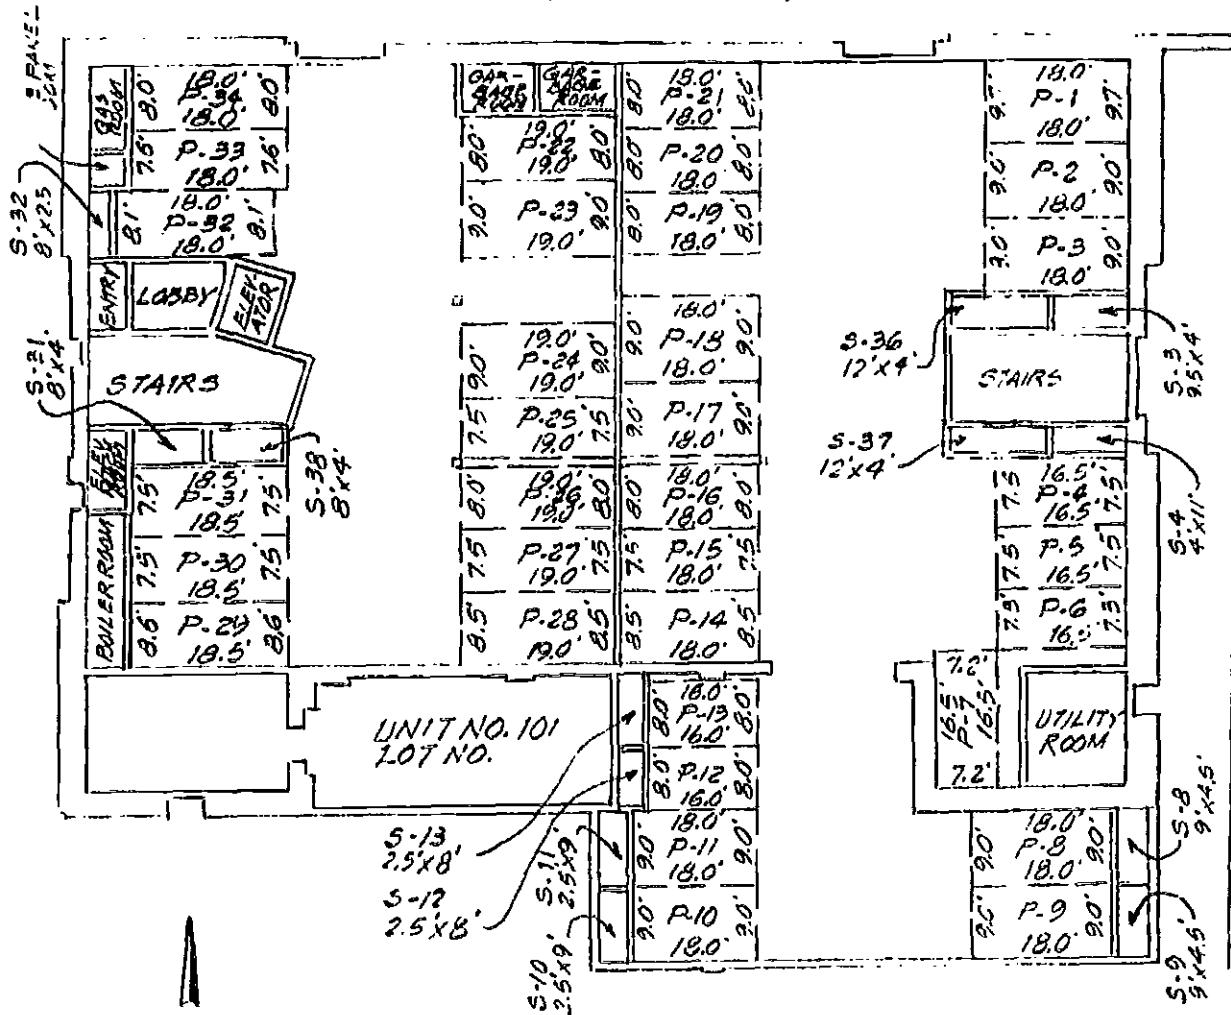 PANEL
S-32
8'x2.5
GAS
ROOM
8.0'
18.0'
P-34
18.0'
8.0'
7.5'
P-33
18.0'
7.6'
18.0'
8.1'
P-32
8.1'
18.0'
ENTRY
LOBBY
ELEV-
ATOR
STAIRS
8'x4'
S-38
8'x4'
ELEV.
BOILER ROOM
7.5'
18.5'
P-31
18.5'
7.5'
7.5'
P-30
18.5'
7.5'
8.6'
P-29
18.5'
8.6'
GAR-
BAGE
ROOM
GAR-
BAGE
ROOM
8.0'
19.0'
P-22
19.0'
8.0'
9.0'
P-23
19.0'
9.0'
9.0'
19.0'
P-24
19.0'
9.0'
7.5'
P-25
19.0'
7.5'
8.0'
19.0'
P-26
19.0'
8.0'
7.5'
P-27
19.0'
7.5'
8.5'
P-28
19.0'
8.5'
8.0'
18.0'
P-21
18.0'
8.0'
8.0'
P-20
18.0'
8.0'
8.0'
P-19
18.0'
8.0'
9.0'
18.0'
P-18
18.0'
9.0'
9.0'
P-17
18.0'
9.0'
8.0'
18.0'
P-16
18.0'
8.0'
7.5'
P-15
18.0'
7.5
8.5'
P-14
18.0'
8.5'
UNIT NO. 101
LOT NO.
8.0'
16.0'
P-13
16.0'
8.0'
8.0'
P-12
16.0'
8.0'
9.0'
18.0'
P-11
18.0'
9.0'
9.0'
P-10
18.0'
9.0'
S-13
2.5'x8'
S-12
2.5'x8'
S-11
2.5x9'
S-10
2.5x9'
9.7'
18.0'
P-1
18.0'
9.7'
9.0'
P-2
18.0'
9.0'
9.0'
P-3
18.0'
9.0'
S-36
12'x4'
S-3
9.5x4'
STAIRS
S-37
12'x4'
S-4
4'x11'
7.5
16.5'
P-4
16.5'
7.5'
7.5'
P-5
16.5'
7.5'
7.3'
P-6
16.5
7.3'
7.2'
16.5'
P-7
16.5'
7.2'
UTILITY
ROOM
9.0'
18.0'
P-8
18.0'
9.0'
9.0'
P-9
18.0'
9.0'
S-8
9'x4.5'
S-9
9'x4.5'